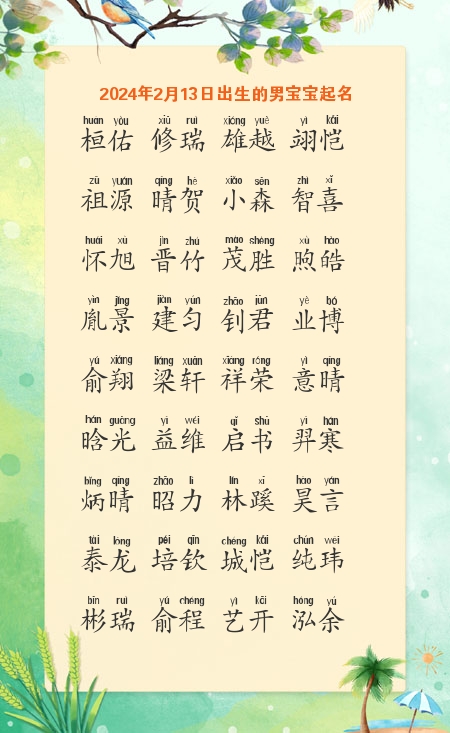 2024年2月13日出生的男宝宝起名
huán yòu xiū ruì xióng yuè yì kǎi
桓佑 修瑞 雄越 翊恺
zǔ yuán qíng hè xiǎo sēn zhì xǐ
祖源 晴贺 小森 智喜
huái xù jìn zhú mào shèng xù hào
怀旭 晋竹 茂胜 煦皓
yìn jǐng jiàn yún zhāo jūn yè bó
胤景 建匀 钊君 业博
yú xiáng liáng xuān xiáng róng yì qíng
俞翔 梁轩 祥荣 意晴
hán guāng yì wéi qǐ shū yì hán
晗光 益维 启书 羿寒
bǐng qíng zhāo lì lín xī hào yán
炳晴 昭力 林蹊 昊言
tài lóng péi qīn chéng kǎi chún wěi
泰龙 培钦 城恺 纯玮
bīn ruì yú chéng yì kāi hóng yú
彬瑞 俞程 艺开 泓余